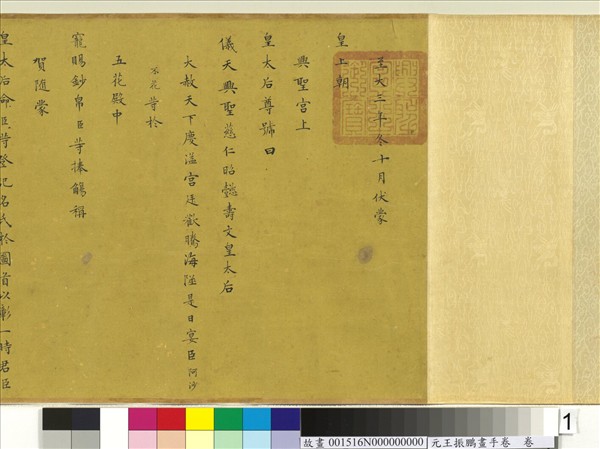 至大三年冬十月伏蒙
皇上朝
興聖宮上
皇太后尊號曰
儀天興聖慈仁昭懿壽文皇太后
大赦天下慶溢宮廷歡騰海隘是日宴臣阿沙
不花等於
五花殿中
寵賜鈔帛臣等捧觴稱
賀隨蒙
皇太后命臣等登記名氏於圖首以彰一時君臣
故畫 001516N000000000 元王振鵬畫手卷 卷
1